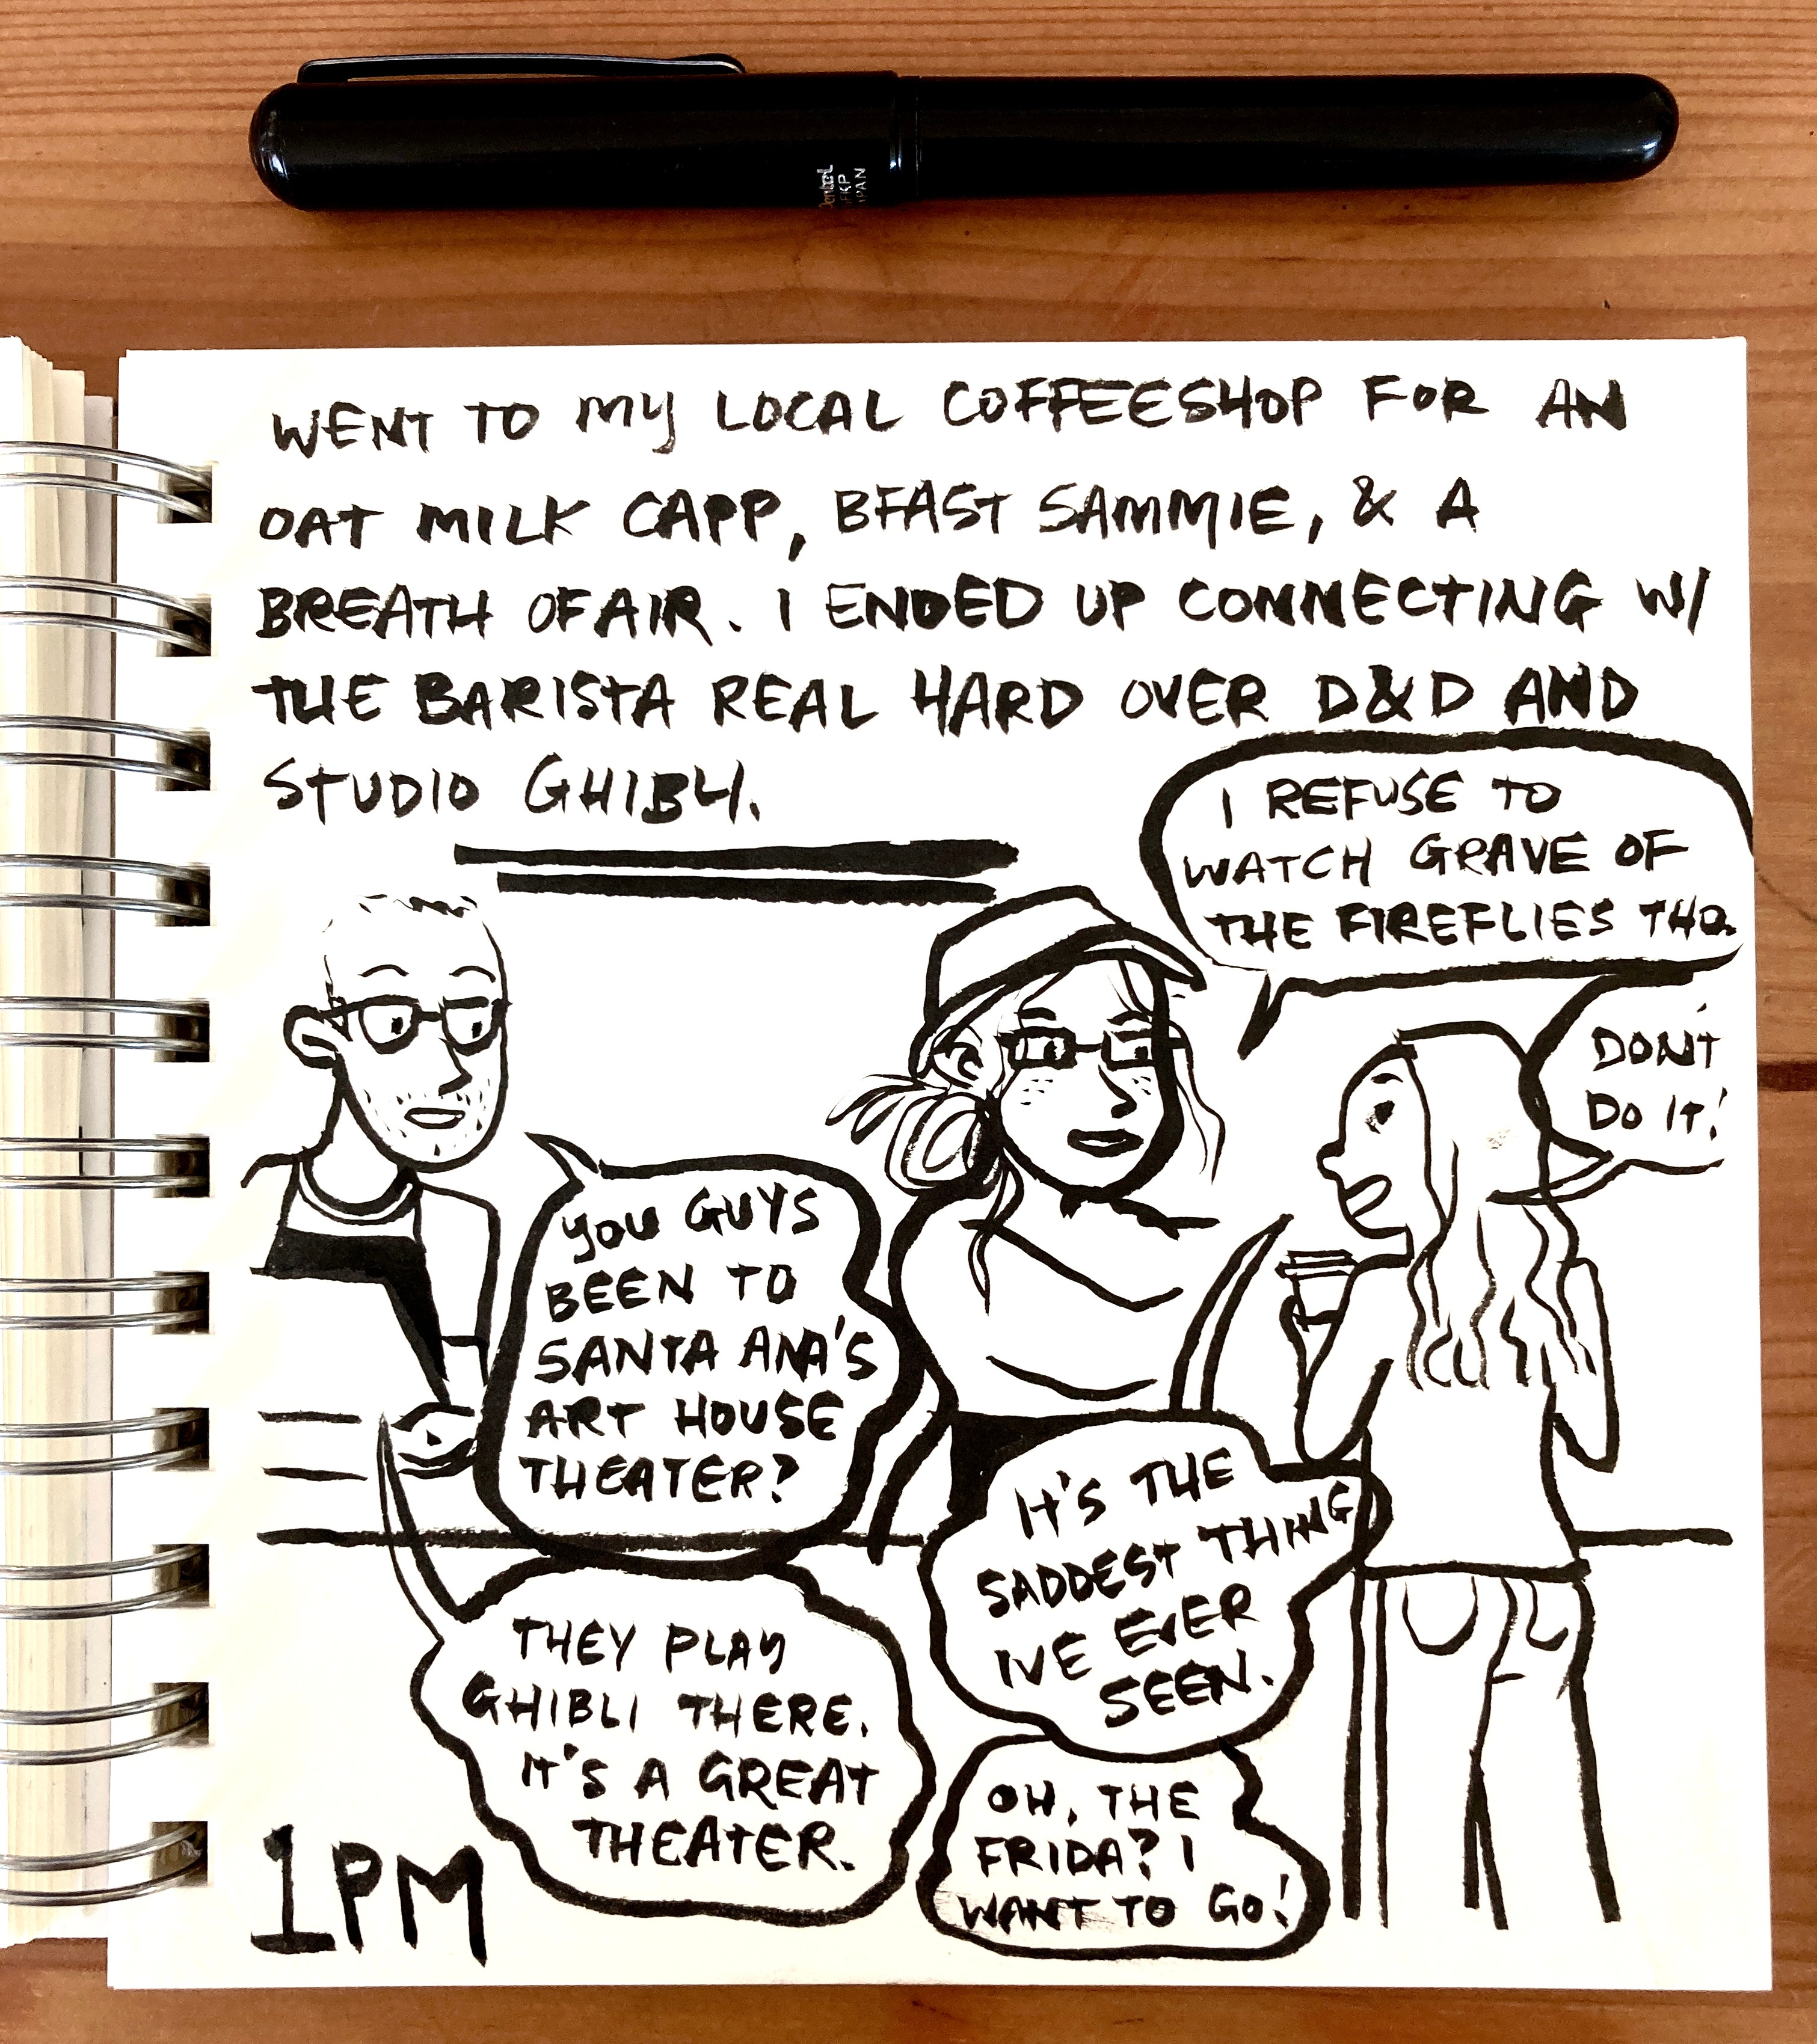 Pentel
JAPAN
WENT TO MY LOCAL COFFEESHOP FOR AN
OAT MILK CAPP, BFAST SAMMIE, & A
BREATH OF AIR. I ENDED UP CONNECTING W/
THE BARISTA REAL HARD OVER D&D AND
STUDIO GHIBLI.
I REFUSE TO
WATCH GRAVE OF
THE FIREFLIES THO.
DON'T
DO IT!
YOU GUYS
BEEN TO
SANTA ANA'S
ART HOUSE
THEATER?
IT'S THE
SADDEST THING
IVE EVER
SEEN.
THEY PLAY
GHIBLI THERE.
IT'S A GREAT
THEATER.
OH, THE
FRIDA? I
WANT TO GO!
1PM